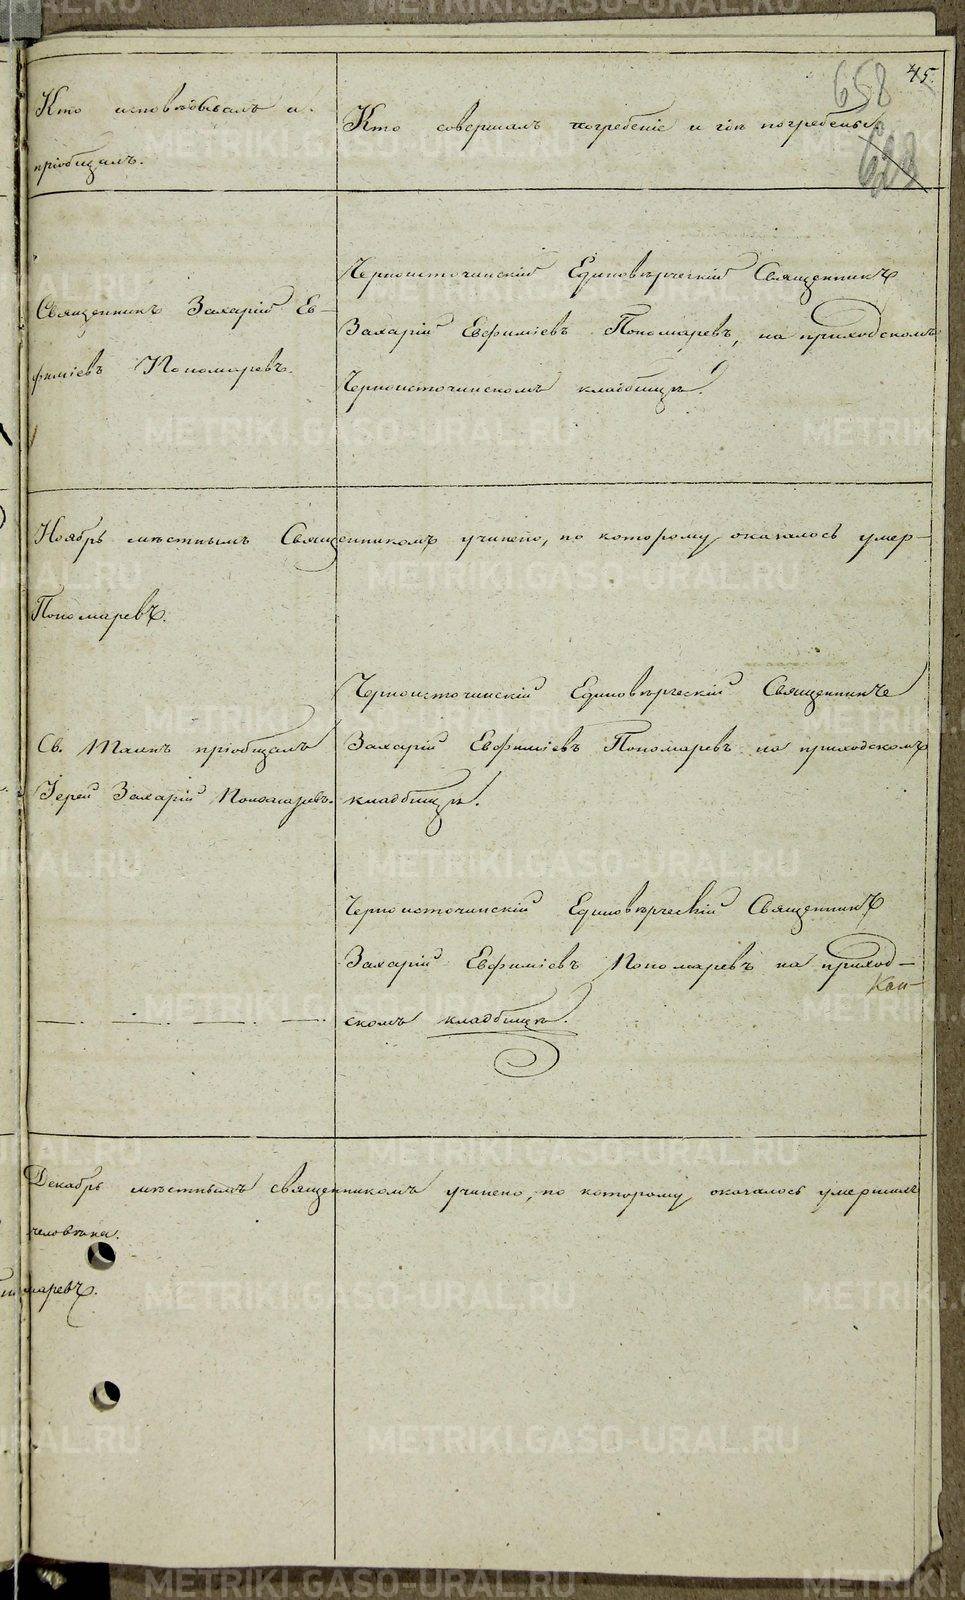 45.
658
628
Кто исповѣдывалъ и
пріобщалъ.
Кто совершалъ погребеніе и гдѣ погребены.
Священникъ Захарій Ев-
фиміевъ Пономаревъ.
Черноисточинскій Единовѣрческій Священникъ
Захарій Евфиміевъ Пономаревъ, на приходскомъ
Черноисточинскомъ кладбищѣ.
Ноябрь мѣстнымъ Священникомъ учинено, по которому оказалось умер-
Пономаревъ.
Св. Таинъ пріобщалъ
Іерей Захарій Пономаревъ.
Черноисточинскій Единовѣрческій Священникъ
Захарій Евфиміевъ Пономаревъ на приходскомъ
кладбищѣ.
Черноисточинскій Единовѣрческій Священникъ
Захарій Евфиміевъ Пономаревъ на приход-
скомъ кладбищѣ.
Декабрь мѣстнымъ священникомъ учинено, по которому оказалось умершихъ
человѣка.
маревъ.
METRIKI.GASO-URAL.RU